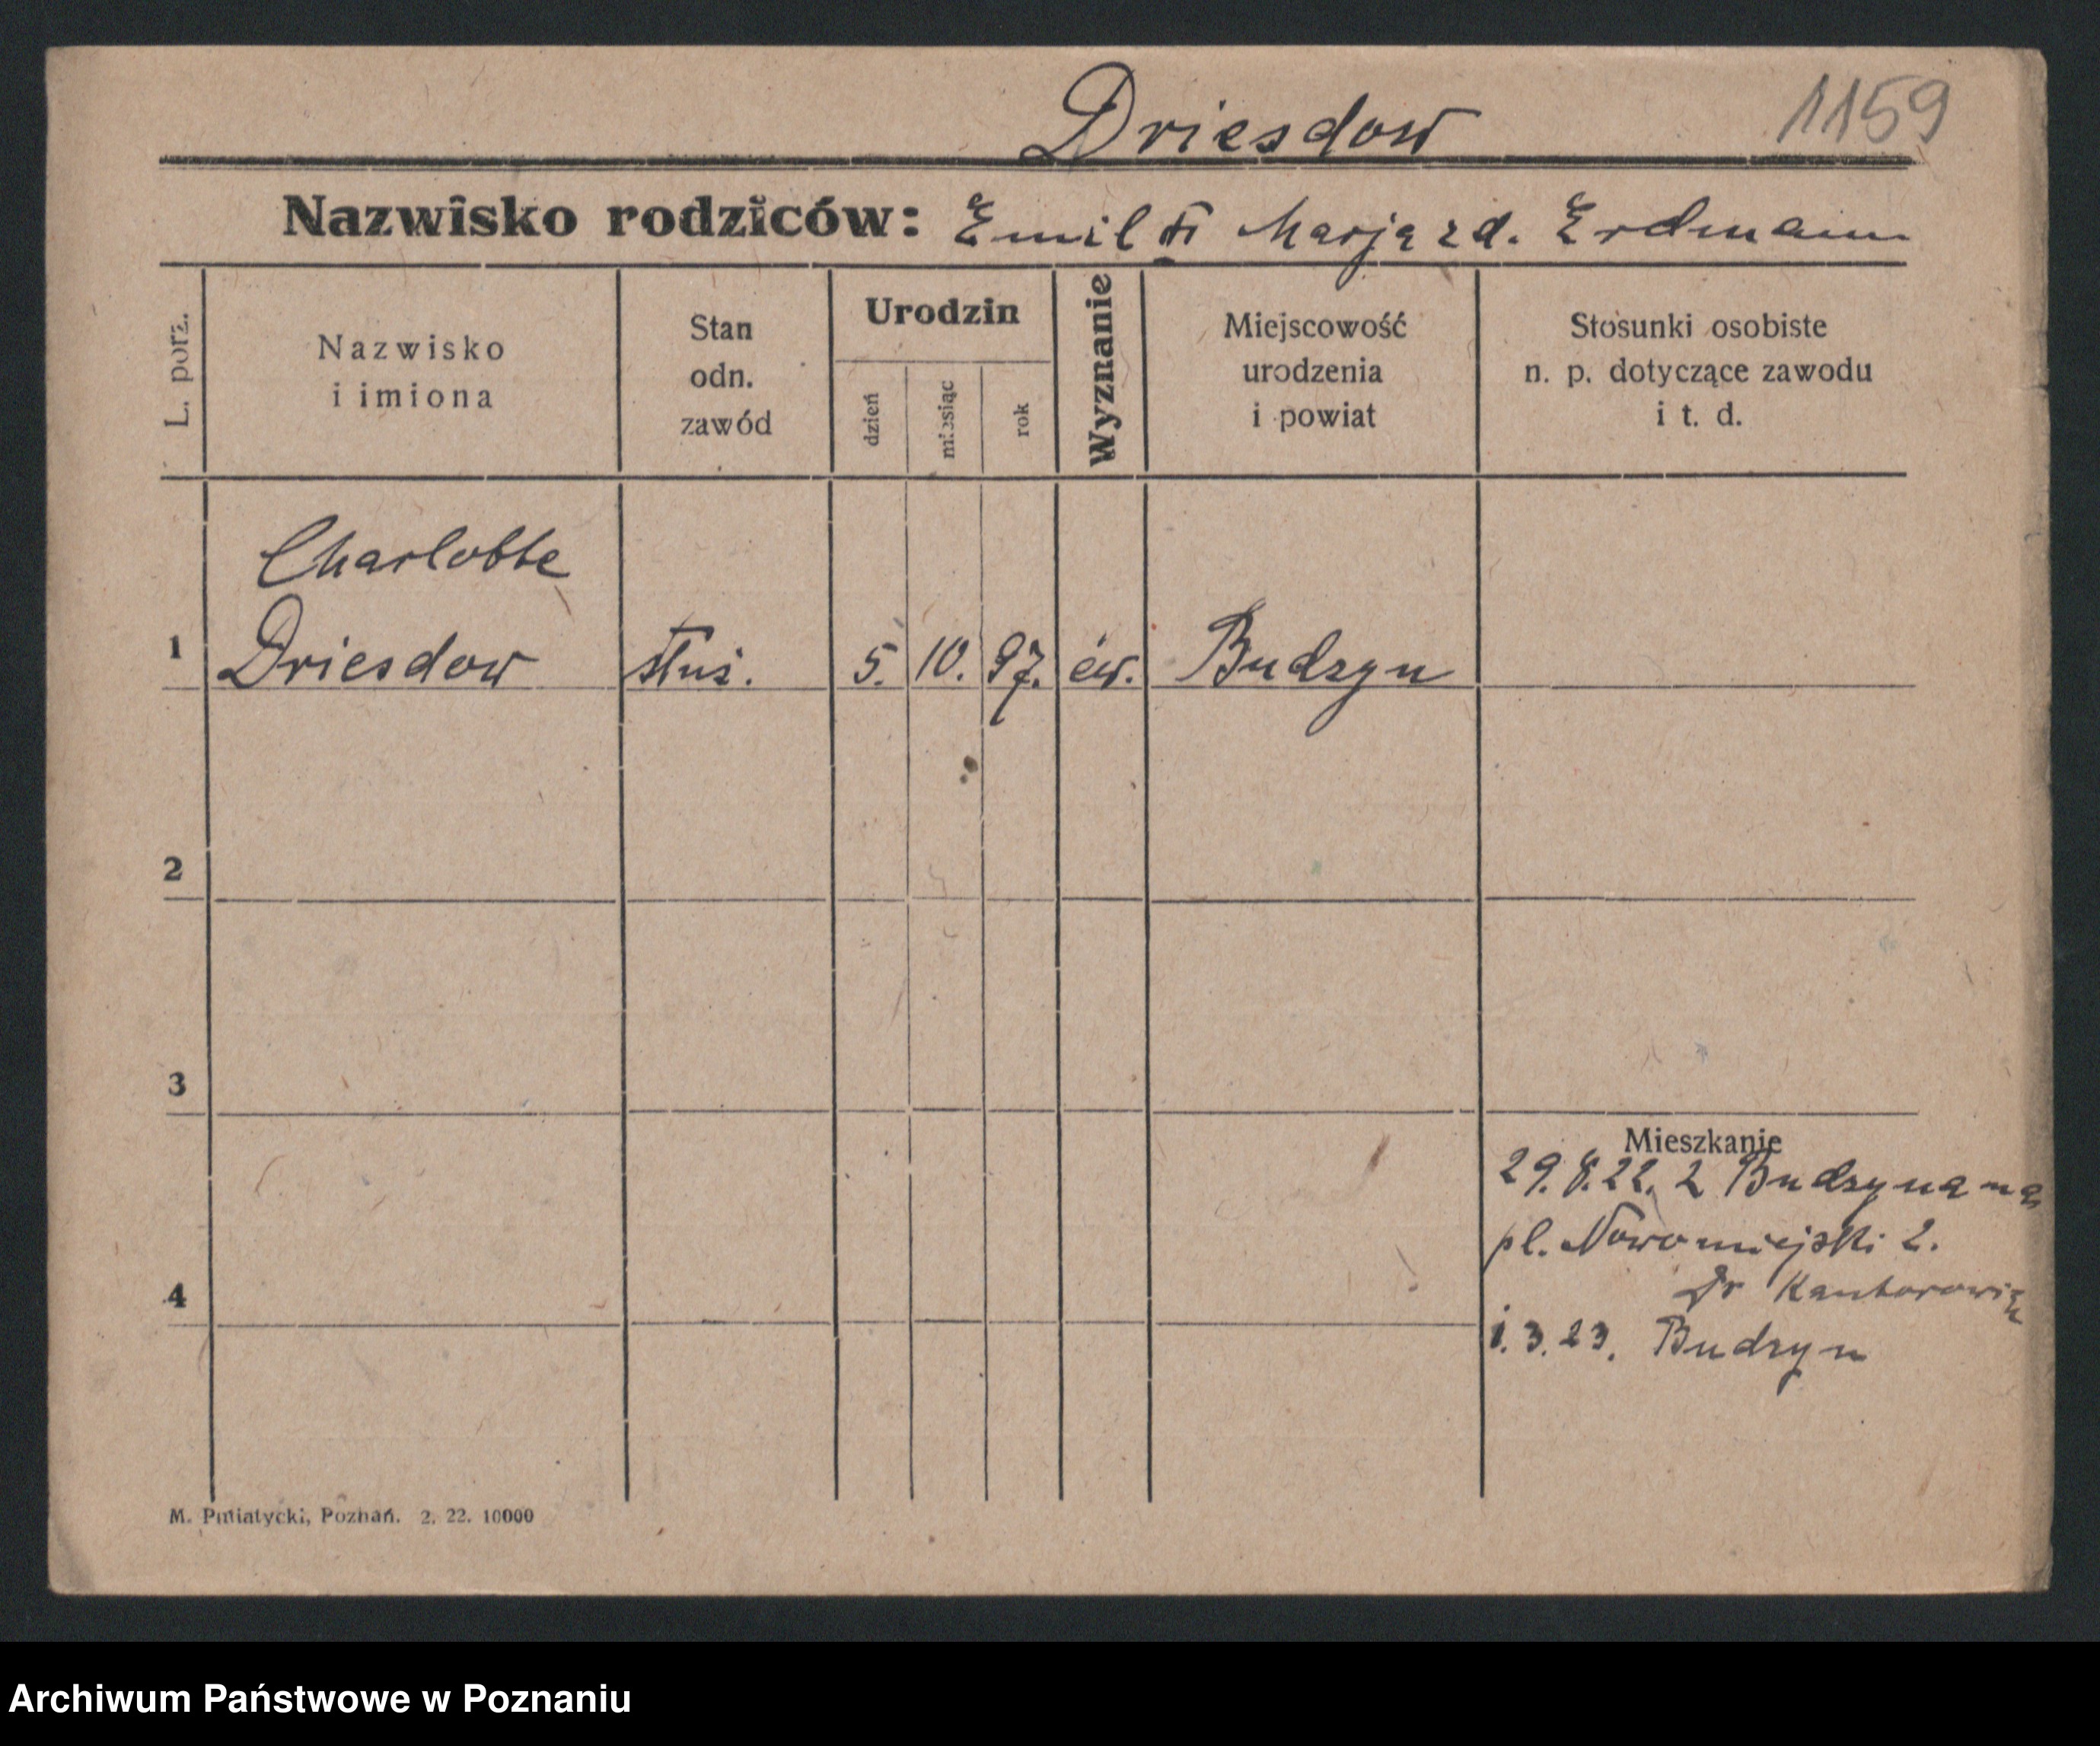 Driesdow 1159
Nazwisko rodziców: Emil i Marja zd. Erdmann
L. porz.
Nazwisko
i imiona
Stan
odn.
zawód
Urodzin
dzień
miesiąc
rok
Wyznanie
Miejscowość
urodzenia
i powiat
Stosunki osobiste
n. p. dotyczące zawodu
i t. d.
Charlotte
1 Driesdow służ. 5. 10. 97. ew. Budzyn
2
3
Mieszkanie
29.8.22. z Budzyna na
pl. Nowomiejski 2.
Dr Kantorowicz
4
1.3.23. Budzyn
M. Putiatycki, Poznań. 2. 22. 10000
Archiwum Państwowe w Poznaniu